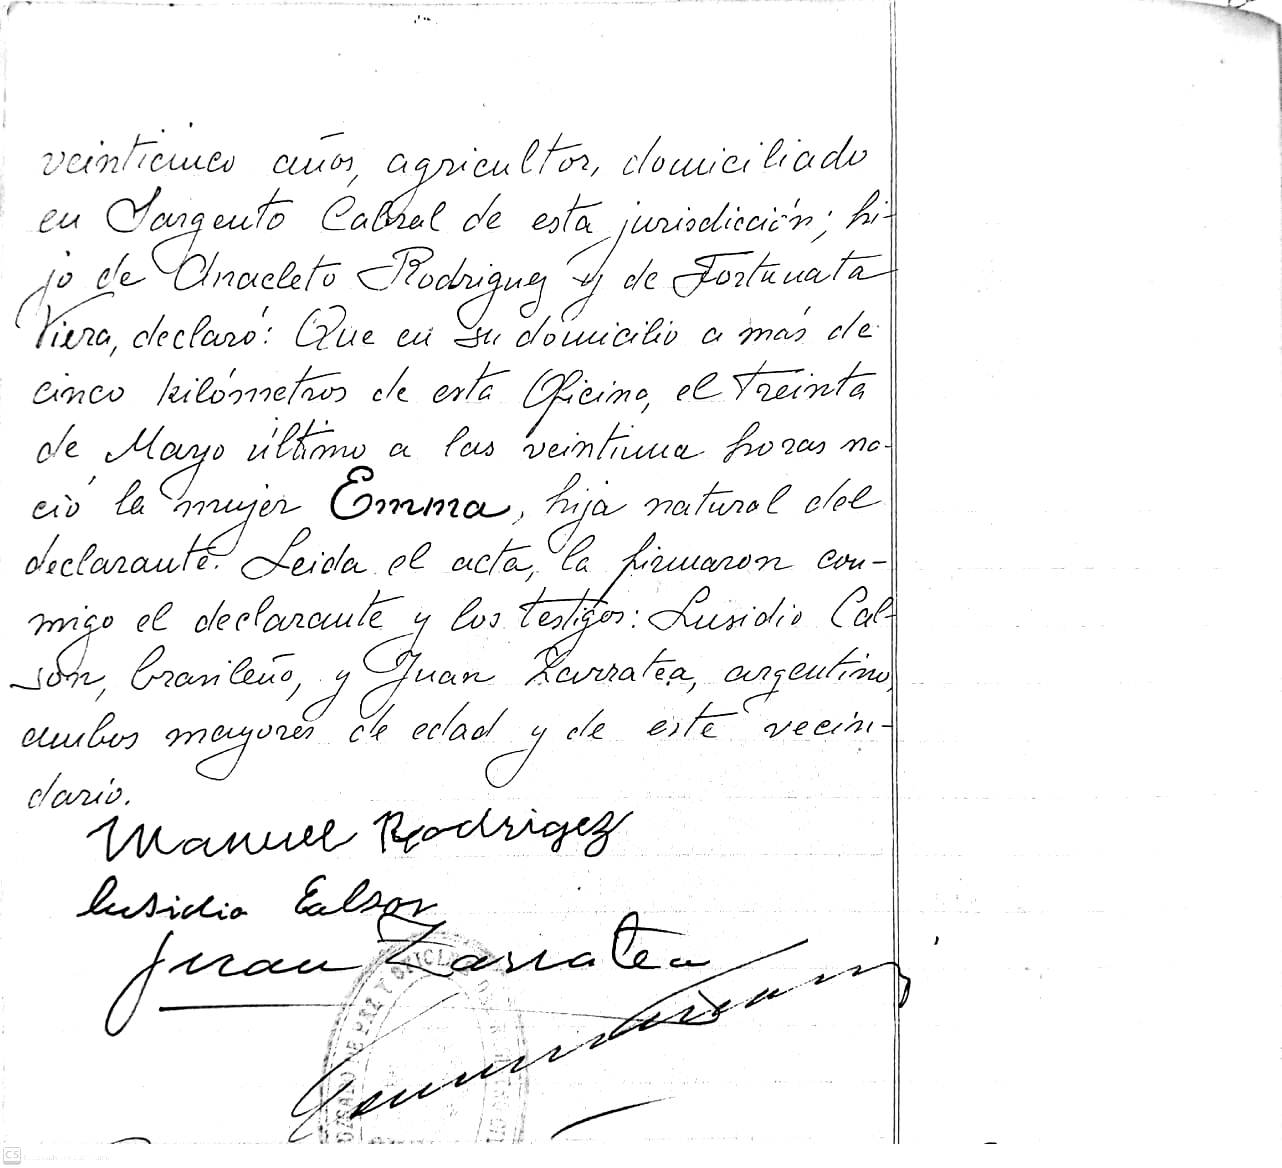 veinticinco años, agricultor, domiciliado
en Sargento Cabral de esta jurisdicción; hi-
jo de Anacleto Rodriguez y de Fortunata
Viera, declaró: Que en su domicilio a más de
cinco kilómetros de esta Oficina, el treinta
de Mayo último a las veintiuna horas na-
ció la mujer Emma, hija natural del
declarante. Leida el acta, la firmaron con-
migo el declarante y los testigos: Lusidio Cal-
son, brasileño, y Juan Zarratea, argentino,
ambos mayores de edad y de este vecin-
dario.
Manuel Rodrigez
lusidio Calson
Juan Zarratea
DE PAZ Y OFICI
CS